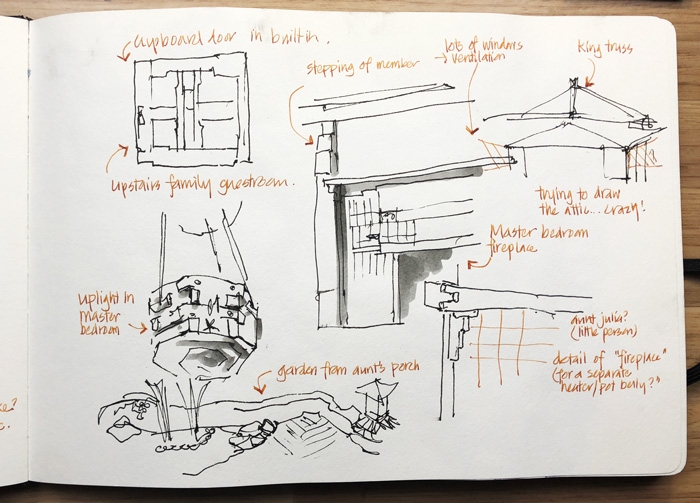 cupboard door in built in.
stepping of member
lots of windows
→ ventilation
King truss
upstairs family guestroom.
trying to draw
the attic... crazy!
Master bedroom
fireplace
uplight in
master
bedroom
aunt julia?
(little person)
garden from aunt's porch
detail of "fireplace"
(for a separate
heater/pot belly?"
?
c.